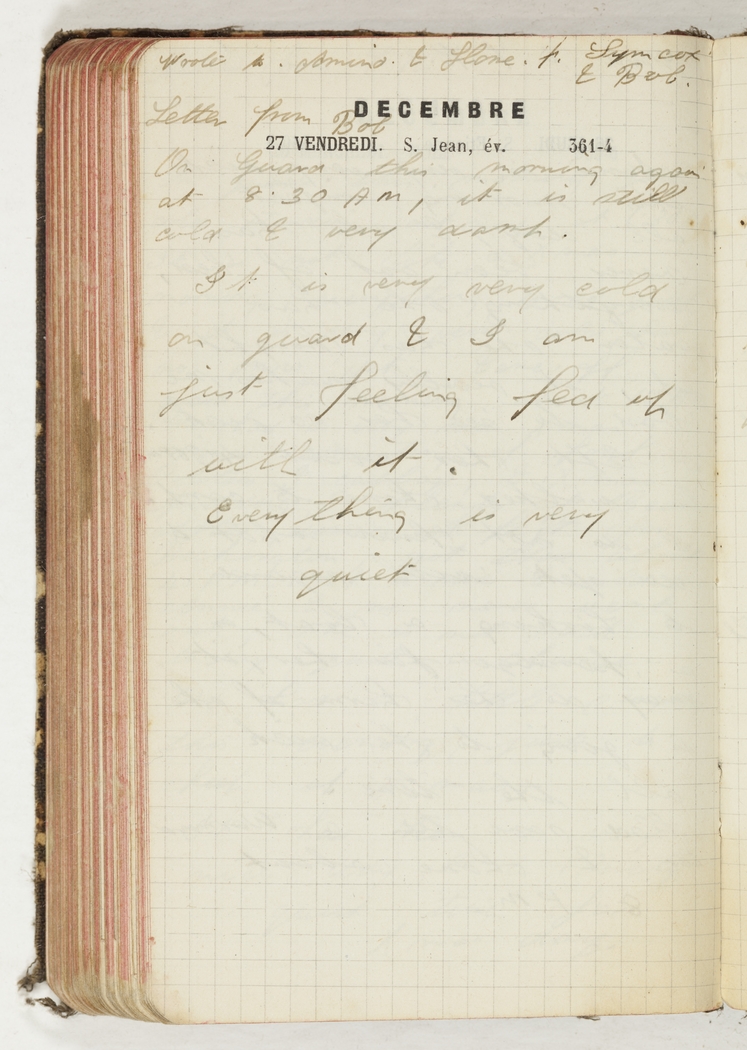 Wrote to . & . Symcox
& Bob.
Letter from Bob
DECEMBRE
27 VENDREDI. S. Jean, év. 361-4
On Guard this morning again
at 8.30 AM, it is still
cold & very damp.
It is very very cold
on guard & I am
just feeling fed up
with it.
Everything is very
quiet